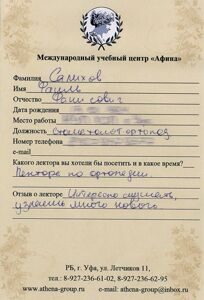 Международный учебный центр «Афина»
Фамилия Салихов
Имя Фаиль
Отчество Фанисович
Дата рождения
Место работы
Должность стоматолог ортопед
Номер телефона
e-mail
Какого лектора вы хотели бы посетить и в какое время?
Лектора по ортопедии.
Отзыв о лекторе Интересно слушать,
узнаешь много нового
РБ, г. Уфа, ул. Летчиков 11,
тел.: 8-927-236-61-02, 8-927-236-62-95
e-mail: athena-group@inbox.ru
www.athena-group.ru